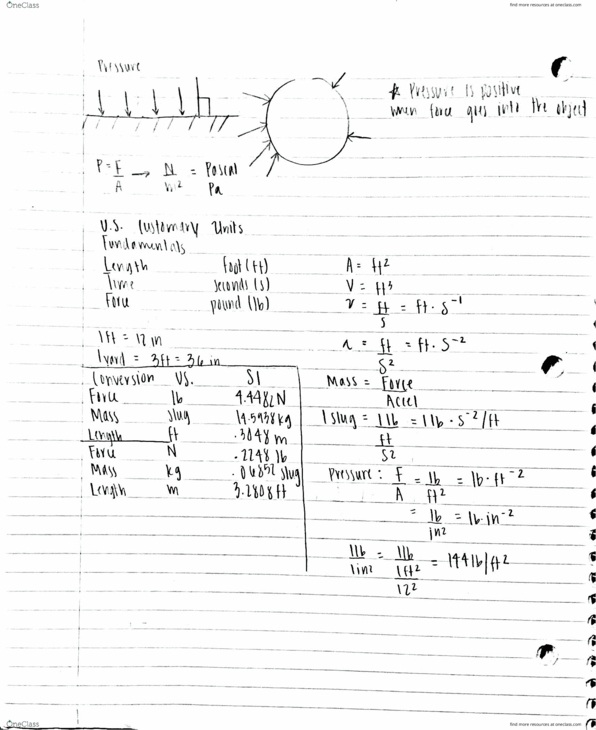 OneClass
find more resources at oneclass.com
Pressure
* Pressure is positive
when force goes into the object
P = F/A → N/m² = Pascal
Pa
U.S. Customary Units
Fundamentals
Length foot (ft)
Time seconds (s)
Force pound (lb)
A = ft²
V = ft³
v = ft/s = ft · s⁻¹
a = ft/s² = ft · s⁻²
1 ft = 12 in
1 yard = 3ft = 36 in
Conversion US. SI
Force lb 4.4482 N
Mass slug 14.5938 kg
Length ft .3048 m
Force N .2248 lb
Mass kg .06852 slug
Length m 3.2808 ft
Mass = Force/Accel
1 slug = 1 lb/(ft/s²) = 1 lb · s⁻²/ft
Pressure: F/A = lb/ft² = lb · ft⁻²
= lb/in² = lb · in⁻²
1 lb/1 in² = 1 lb/(1 ft²/12²) = 144 lb/ft²
OneClass
find more resources at oneclass.com